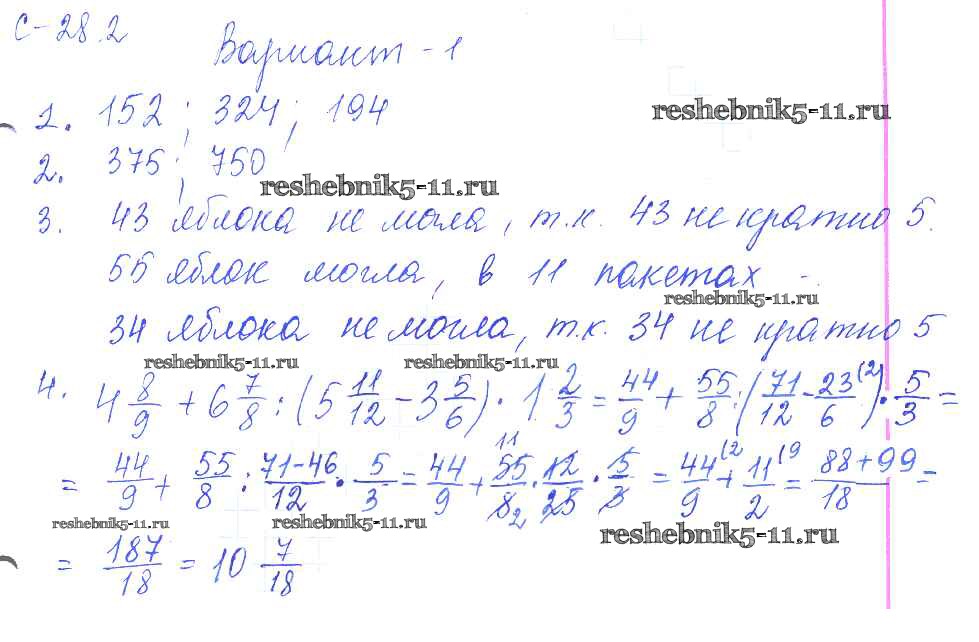 С-28.2
Вариант - 1
1. 152; 324; 194
reshebnik5-11.ru
2. 375; 750
reshebnik5-11.ru
3. 43 яблока не мола, т.к. 43 не кратно 5.
55 яблок могла, в 11 пакетах
reshebnik5-11.ru
34 яблока не могла, т.к. 34 не кратно 5
reshebnik5-11.ru reshebnik5-11.ru
4. 4 8/9 + 6 7/8 : (5 11/12 - 3 5/6) · 1 2/3 = 44/9 + 55/8 : (71/12 - 23/6 (2) · 5/3 =
= 44/9 + 55/8 : 71-46/12 · 5/3 = 44/9 + 55 11/8 2 · 12/25 · 5/3 = 44/9 (2 + 11/2 (9 = 88+99/18 =
reshebnik5-11.ru reshebnik5-11.ru reshebnik5-11.ru
= 187/18 = 10 7/18